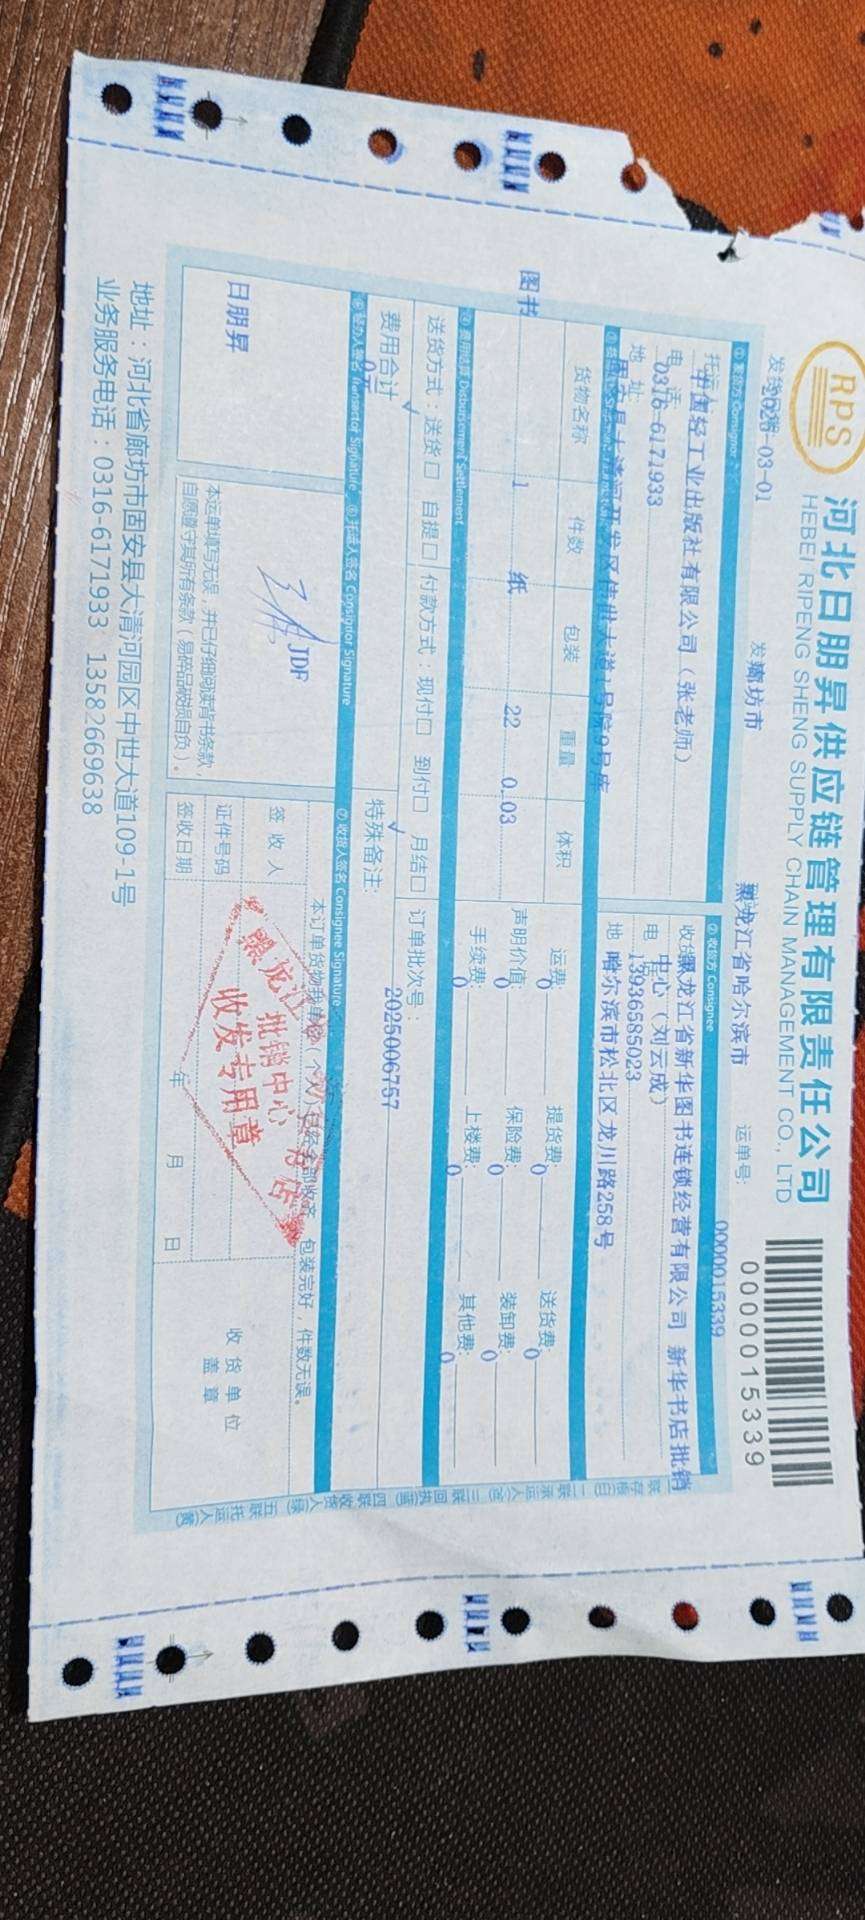 RPS
河北日朋昇供应链管理有限责任公司
HEBEI RIPENG SHENG SUPPLY CHAIN MANAGEMENT CO., LTD
0000015339
发货 2025-03-01
廊坊市
黑龙江省哈尔滨市
运单号:
0000015339
① 发货方 Consignor
② 收货方 Consignee
托运 中国轻工业出版社有限公司(张老师)
收货 黑龙江省新华图书连锁经营有限公司 新华书店批销
中心(刘云成)
电 话 0316-6171933
电 13936585023
地 址
地 哈尔滨市松北区龙川路258号
货物名称
件数
包装
重量
体积
图书
1
纸
22
0.03
运费: 0
提货费: 0
送货费: 0
声明价值: 0
保险费: 0
装卸费: 0
手续费: 0
上楼费: 0
其他费: 0
④ 费用结算 Disbursement Settlement
送货方式:送货□ 自提□
付款方式:现付□ 到付□ 月结□
订单批次号:
2025006757
费用合计
特殊备注:
⑤ 经办人签名 Transactor Signature
⑥ 托运人签名 Consignor Signature
⑦ 收货人签名 Consignee Signature
日朋昇
JDF
本运单填写无误,并已仔细阅读背书条款,
自愿遵守其所有条款(易碎品破损自负)。
包装完好,件数无误。
签收人
证件号码
签收日期
年 月 日
收货单位
盖章
黑龙江
批销中心
收发专用章
地址:河北省廊坊市固安县大清河园区中世大道109-1号
业务服务电话:0316-6171933 13582669638